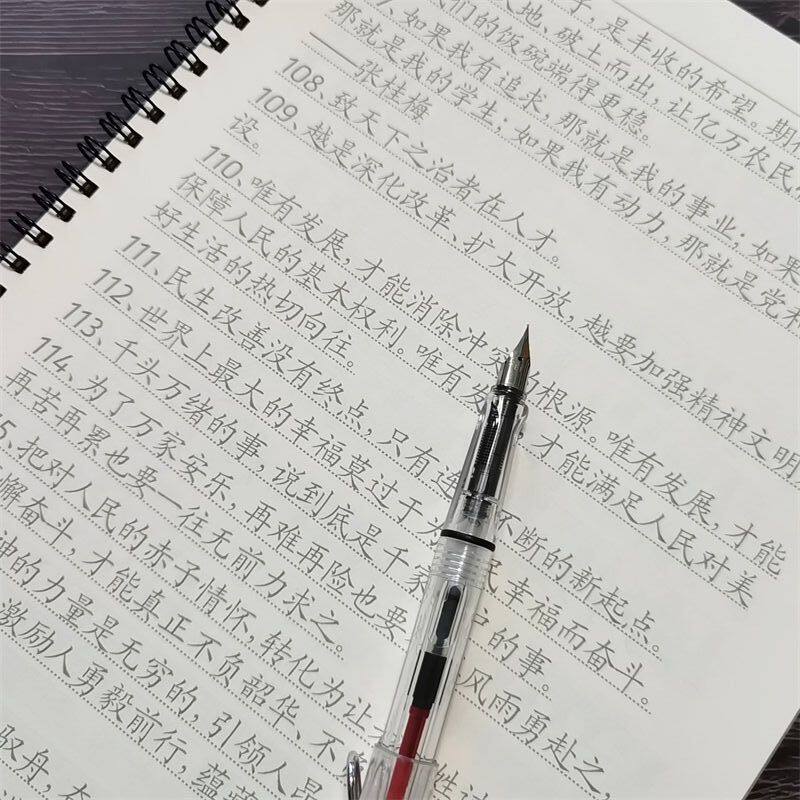 子，是丰收的希望。期
大地、破土而出，让亿万农民
们的饭碗端得更稳。
如果我有追求，那就是我的事业；如果
那就是我的学生；如果我有动力，那就是党和
——张桂梅
108、致天下之治者在人才。
109、越是深化改革、扩大开放，越要加强精神文明
设。
110、唯有发展，才能消除冲 的根源。唯有发展，才能
保障人民的基本权利。唯有发 ，才能满足人民对美
好生活的热切向往。
111、民生改善没有终点，只有连 不断的新起点。
112、世界上最大的幸福莫过于为 民幸福而奋斗。
113、千头万绪的事，说到底是千家 的事。
114、为了万家安乐，再难再险也要 风雨勇赴之，
再苦再累也要一往无前力求之。
5、把对人民的赤子情怀，转化为让
懈奋斗，才能真正不负韶华、不
神的力量是无穷的，引领人昂
激励人勇毅前行，蕴
舟，